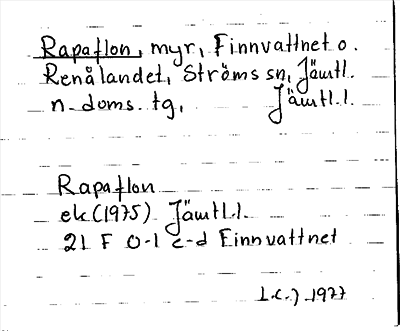 Rapaflon, myr, Finnvattnet o.
Renålandet, Ströms sn, Jämtl.
n-doms. tg, Jämtl.l.
Rapaflon
ek (1975) Jämtl.l.
21 F 0-1 c-d Finnvattnet
1977